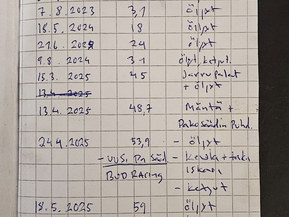 7.8.2023 3,1 öljyt
18.5.2024 18 öljyt
21.6.2024 24 öljyt
9.8.2024 31 öljyt, ketjut.
15.3.2025 45 Jarrupalat
+ öljyt
13.4.2025 48,7 Mäntä +
Pakosäädin Puhd.
24.4.2025 53,9 - öljyt
- UUSI Pa - Keula + taka
BUD RACING iskari
- ketjut
18.5.2025 59 öljyt